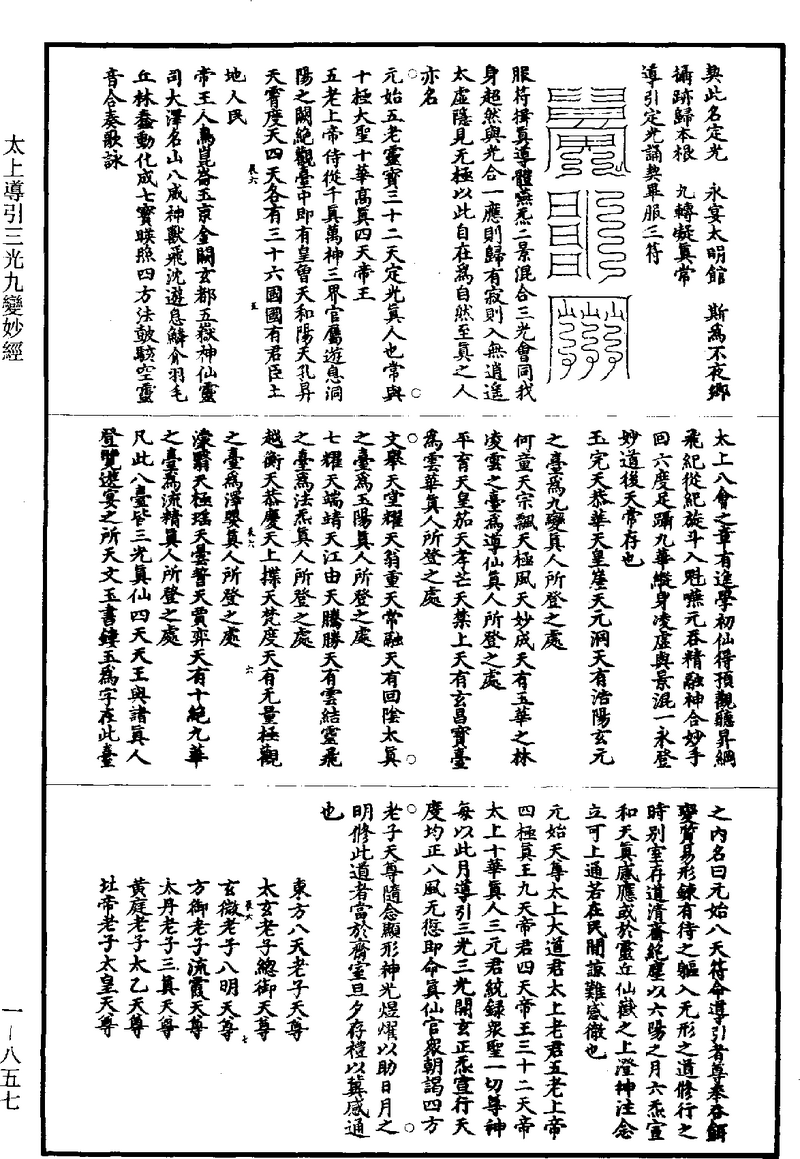 契此名定光　永宴太明館　斯為不夜鄉
攝跡歸本根　九轉凝真常
導引定光誦契畢服三符
服符揖真導體嚥炁二景混合三光會同我
身超然與光合一應則歸有寂則入無逍遙
太虛隱見无極以此自在為自然至真之人
亦名
元始五老靈寶三十二天定光真人也常與
十極大聖十華高真四天帝王
五老上帝侍從千真萬神三界官屬遊息洞
陽之闕絕觀臺中即有皇曾天和陽天孔昇
天霄度天四天各有三十六國國有君臣土
地人民
帝王人鳥崑崙玉京金闕玄都五嶽神仙靈
司大澤名山八威神獸飛沈遊息鱗介羽毛
丘林蠢動化成七寶暎照四方法鼓駭空靈
音合奏歌詠
太上八會之章有進學初仙得預觀聽昇綱
飛紀從紀旋斗入魁嚥元吞精融神合妙手
回六度足躡九華縱身凌虛與景混一永登
妙道後天常存也
玉完天恭華天皇崖天元洞天有浩陽玄元
之臺為九變真人所登之處
何童天宗飄天極風天妙成天有五華之林
凌雲之臺為導仙真人所登之處
平育天皇笳天孝芒天禁上天有玄昌寶臺
為雲華真人所登之處
文舉天堂耀天翁重天常融天有回陰太真
之臺為玉陽真人所登之處
七耀天端靖天江由天騰勝天有雲結靈飛
之臺為法炁真人所登之處
越衡天恭慶天上揲天梵度天有无量極觀
之臺為澤嬰真人所登之處
濛翳天極瑤天曇誓天賈奕天有十絕九華
之臺為流精真人所登之處
凡此八臺皆三光真仙四天天王與諸真人
登賢遊宴之所天文玉書鏤玉為字在此臺
之內名曰元始八天符命導引者尊奉吞餌
變質易形鍊有待之軀入无形之道修行之
時別室存道清齋絕塵以六陽之月六炁宣
和天真感應或於靈丘仙嶽之上澄神注念
立可上通若在民間諒難感徹也
元始天尊太上大道君太上老君五老上帝
四極真王九天帝君四天帝王三十二天帝
太上十華真人三元君統錄眾聖一切尊神
每以此月導引三光三光開玄正炁宣行天
度均正八風无愆即命真仙官眾朝謁四方
老子天尊隨念顯形神光煜燿以助日月之
明修此道者當於齋室旦夕存禮以冀感通
也
東方八天老子天尊
太玄老子總御天尊
玄微老子八明天尊
方御老子流霞天尊
太丹老子三真天尊
黃庭老子太乙天尊
壯帝老子太皇天尊
太上導引三光九變妙經
一—八五七